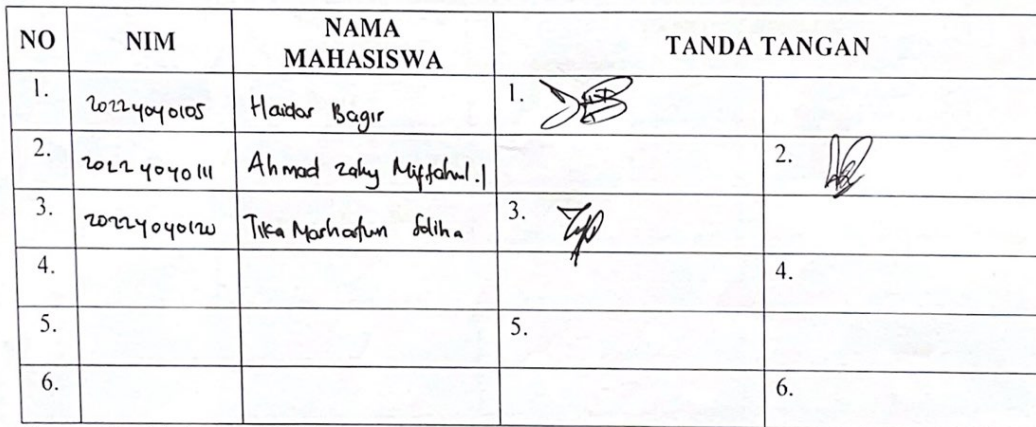 NO NIM NAMA MAHASISWA TANDA TANGAN
1. 20224040105 Haidar Bagir 1.
2. 20224040111 Ahmad Zaky Miftahul.I 2.
3. 20224040120 Tika Marhatun Soliha 3.
4. 4.
5. 5.
6. 6.